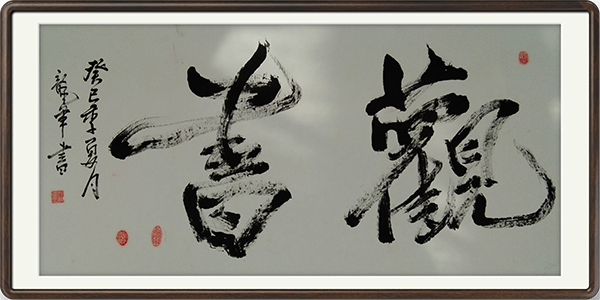 觀書
癸巳年夏月
龍書